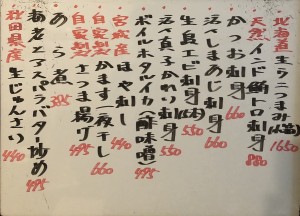 北海道 生ウニつまみ(小箱) 1650
天然 インド鮪トロ刺身 880
かつお刺身 660
活〆しまあじ刺身 660
生島エビ刺身(5本) 550
活〆真子かれい刺身 550
ボイルホタルイカ(酢味噌) 495
宮城産 ほや刺し 440
自家製 かます一夜干し 660
自家製 さつま揚げ 495
あら煮 385
海老とアスパラバター炒め 495
秋田県産 生じゅんさい 440